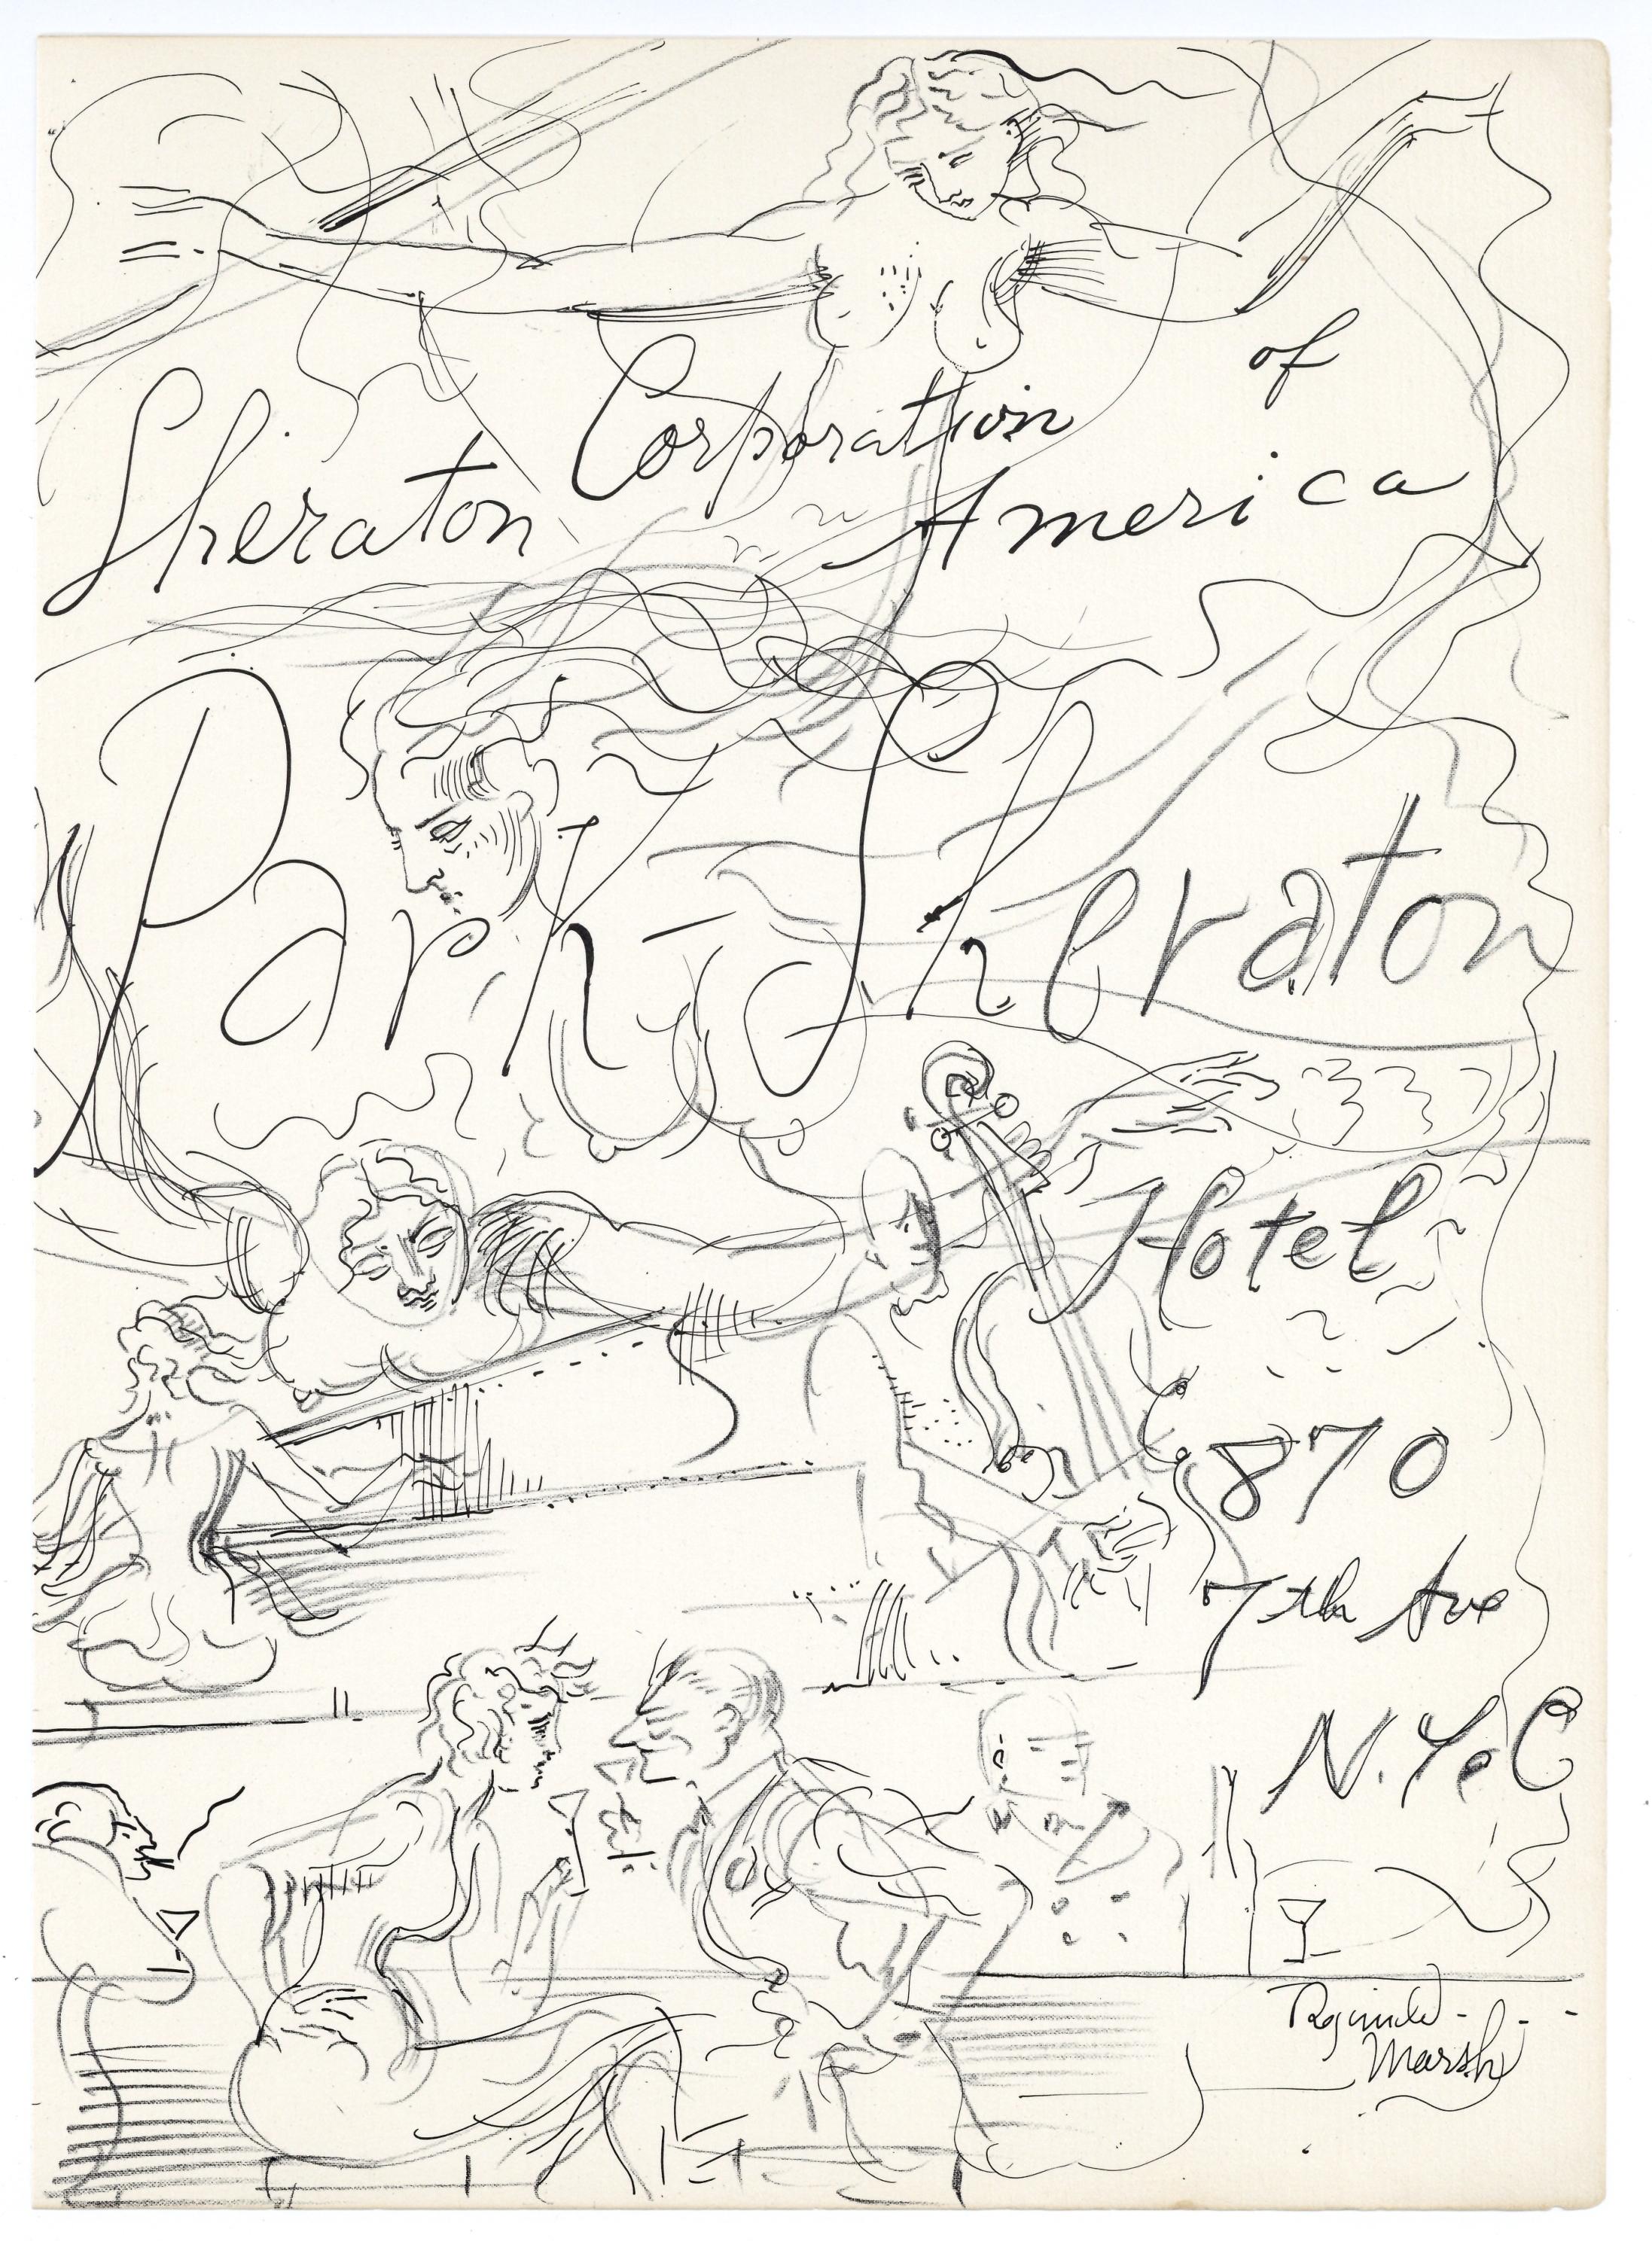 Sheraton Corporation of America
Park-Sheraton
Hotel
870
7th Ave
N.Y.C
Reginald
Marsh